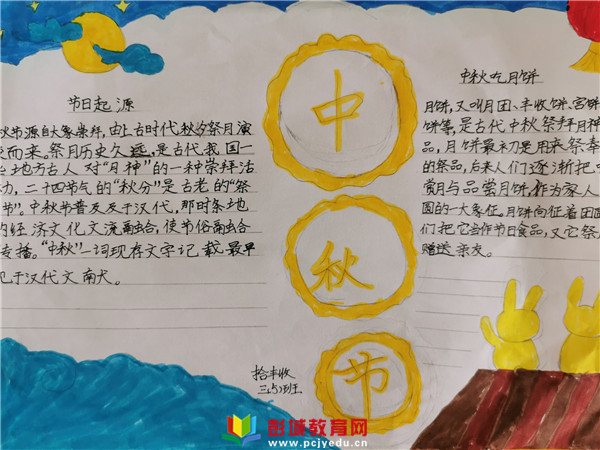 节日起源
秋节源自天象崇拜，由上古时代秋夕祭月演
变而来。祭月历史久远，是古代我国一
地方古人对"月神"的一种崇拜活
动，二十四节气的"秋分"是古老的"祭
节"。中秋节普及于汉代，那时各地
的经济文化交流融合，使节俗融合
传播。"中秋"一词现存文字记载最早
见于汉代文献。
中
秋
节
拾丰收
三(5)班
中秋吃月饼
月饼，又叫月团、丰收饼、宫饼
饼等，是古代中秋祭拜月神
品，月饼最初是用来祭奉
的祭品，后来人们逐渐把中
赏月与品尝月饼，作为家人
圆的一大象征。月饼向征着团圆
们把它当作节日食品，又它祭月
赠送亲友。
彭城教育网
www.pcjyedu.cn